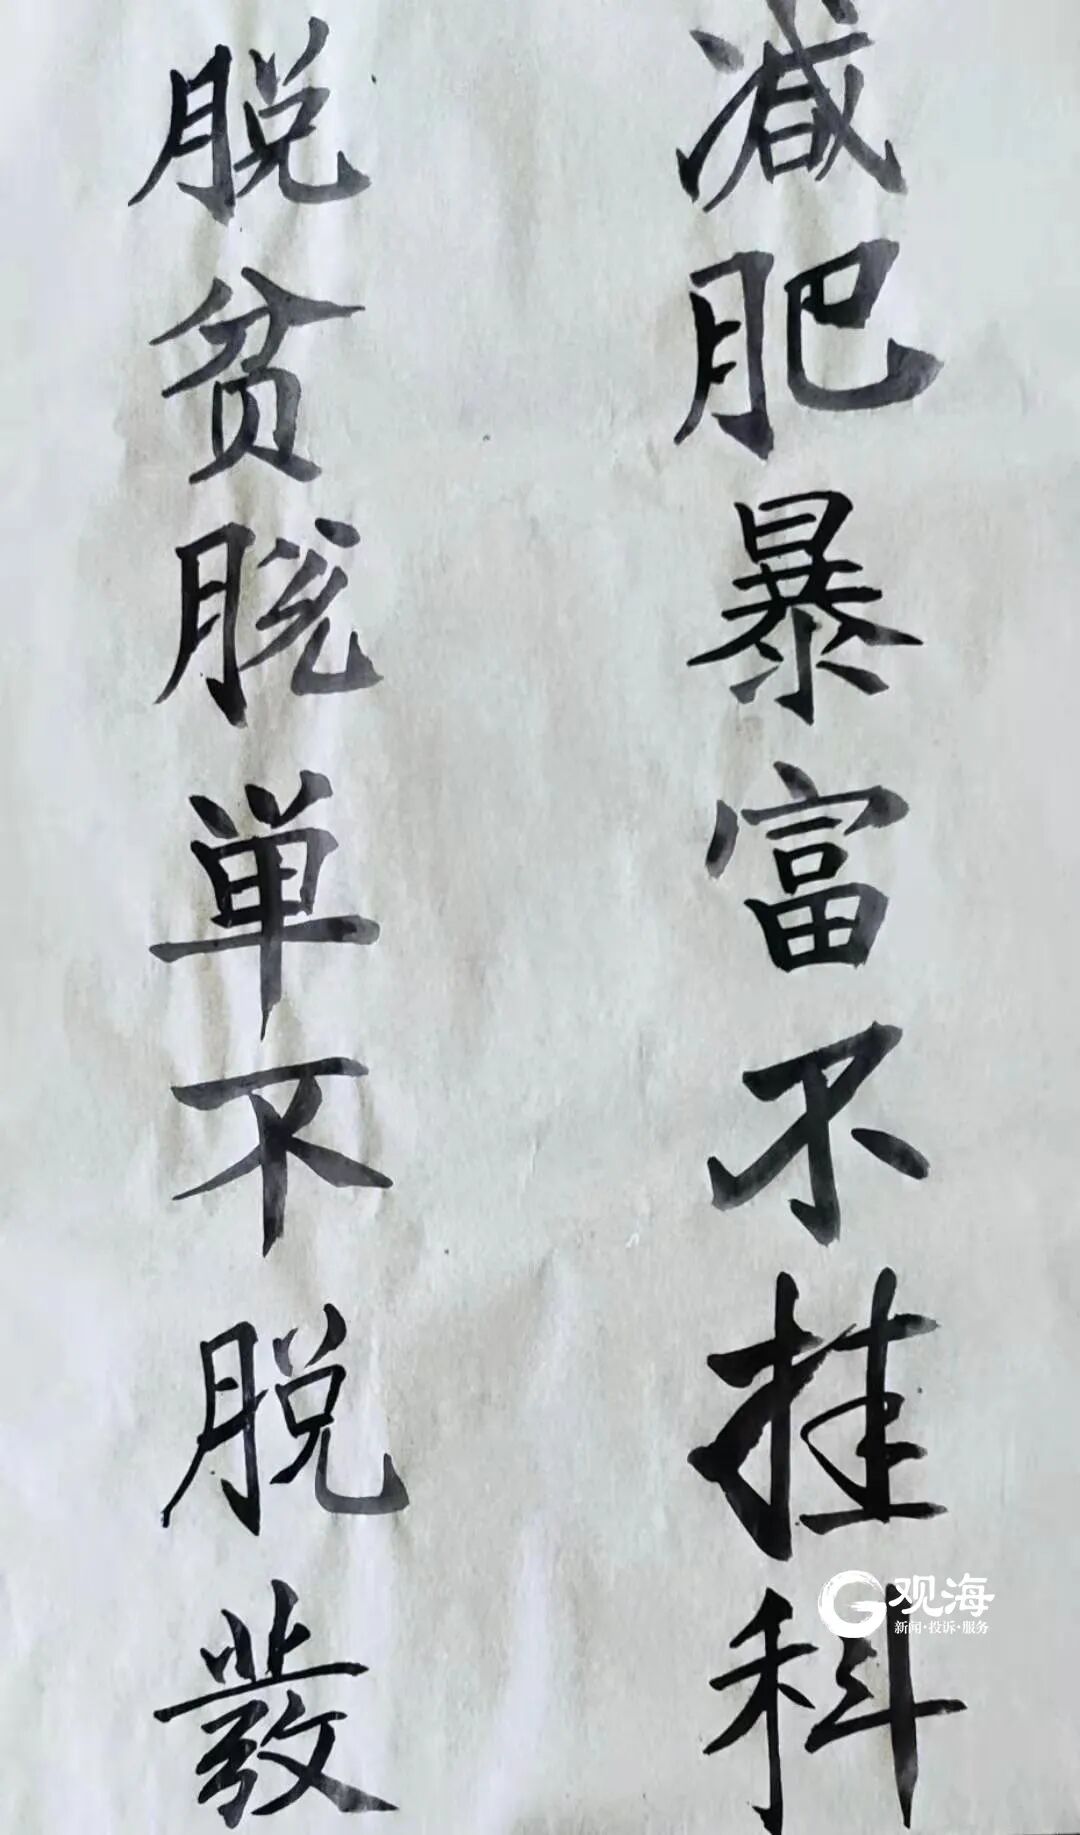 减肥暴富不挂科
脱贫脱单不脱发
观海
新闻·投诉·服务